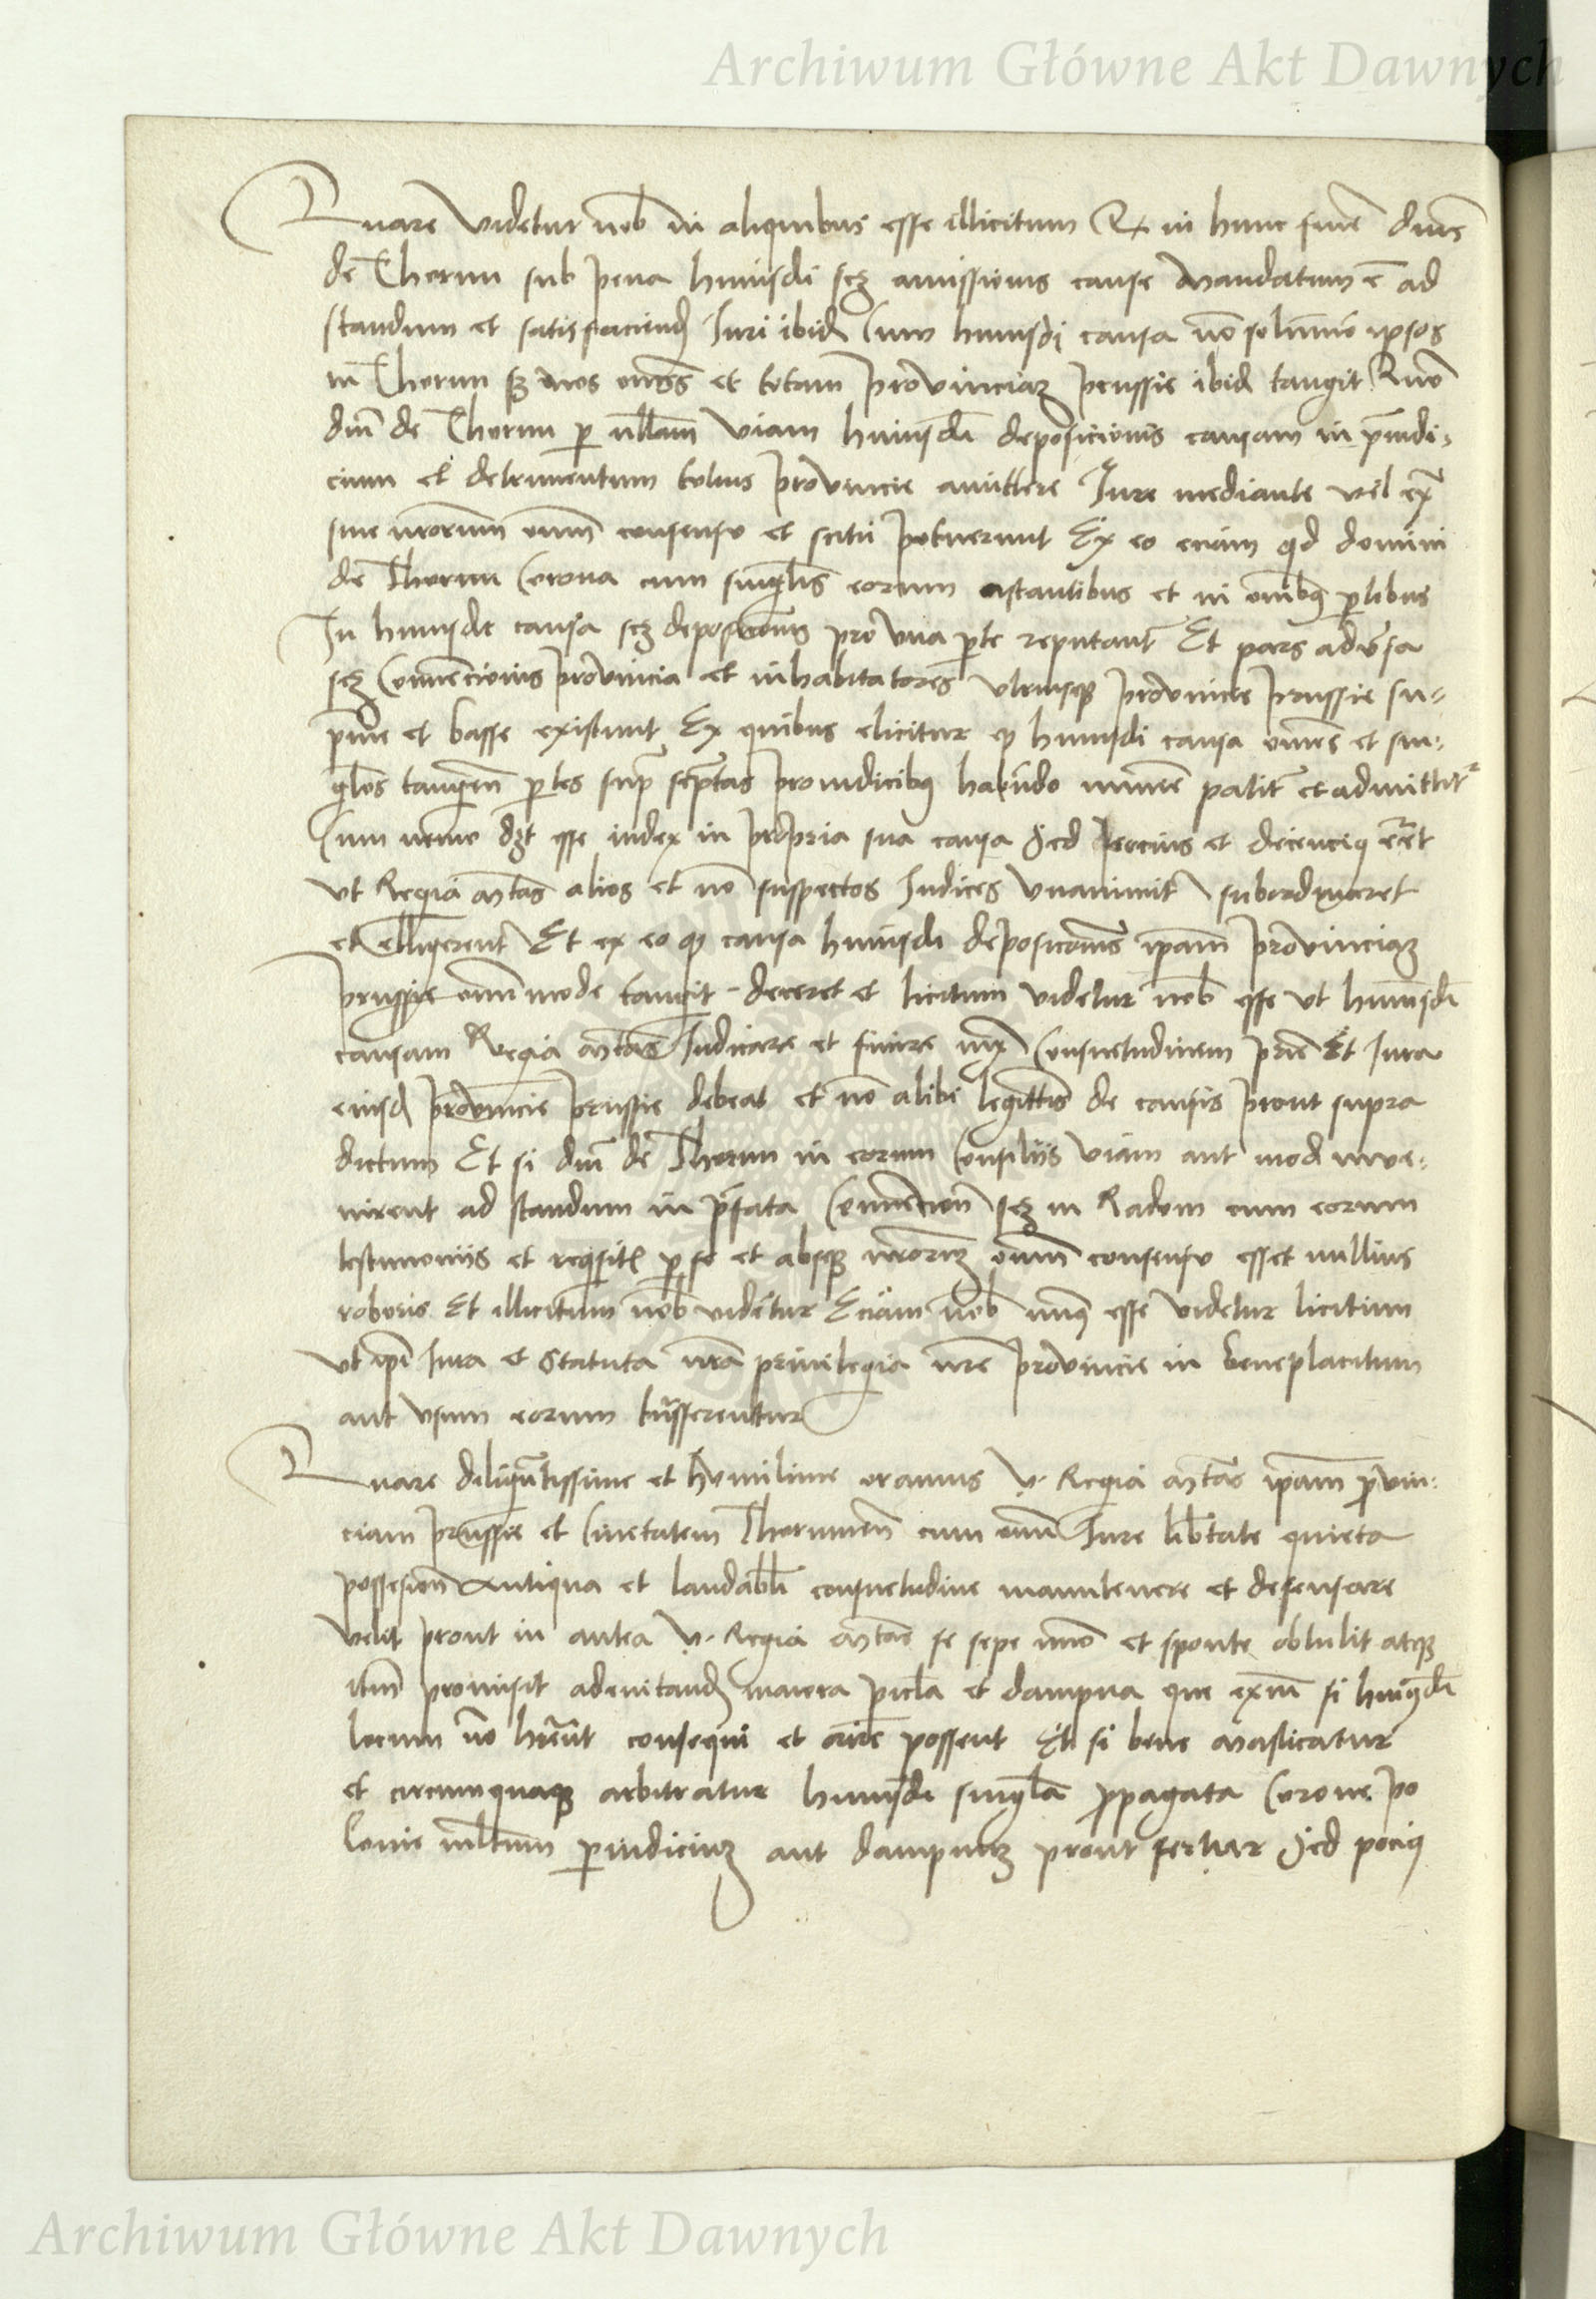 Archiwum Główne Akt Dawnych
Quare videtur nob in aliquibus esse illicitum Et in hunc finē dnis
de Thorun sub pena huiusdi scz amissionis cause mandatum ē ad
standum et satisfaciend Juri ibid Cum huiusdi causa nō solūmō ipsos
in Thorun sz nos omēs et totam provinciaz prussie ibid tangit Quō
dni de Thorun p nllam viam huiusdi deposicionis causam in pīudi-
cium et detrimentum tocius provincie amittere Jure mediante vel
sine nrorum omī consensu et scitu potuerunt Ex eo eciam qd domini
de Thorun Corona cum singlis eorum astantibus et in omībq ptibus
In huiusdi causa scz deposicōnis pro una pte reputantr Et pars advsa
scz Convencionis provincia et inhabitatores utriusqz provincie prussie su-
pme et basse existunt Ex quibus elicitur q huiusdi causa omēs et sin-
glos tangen ptes supra scptas pro iudicibq habendo minime patitr et admittitr
Cum nemo dzt esse iudex in propria sua causa Sed pocius et decencig eēt
ut Regia mtas alios et nō suspectos Judices unanimitr subordinaret
et elligerent Et ex eo q causa huiusdi deposicōnis ipam provinciaz
prussie omnimode tangit deceret et licitum videtur nob esse ut huiusdi
causam Regia mtas Judicare et finire iuxta Consuetudinem prie Et Jura
eiusd provincie prussie debeat et nō alibi legittīs de causis prout supra
dictum Et si dni de Thorun in eorum Consiliis viam aut mod inve-
nirent ad standum in pfata Convencion scz in Radom cum eorum
testimoniis et reqsitis p se et absqz nrorz omī consensu esset nullius
roboris Et illicitum nob videtur Eciam nob miq esse videtur licitum
ut ipi Jura et Statuta nra privilegia nre provincie in beneplacitum
aut usum eorum transferentur
Quare diligntissime et humilime oramus V. Regia mtas ipam pvin-
ciam prussie et Civitatem Thorunen cum omī Jure libtate quieta
possesion antiqua et laudabli consuetudine manutenere et defensare
velit prout in antea V. Regia mtas se sepe nūo et sponte obtulit atqz
itm promisit ad evitand maiora picla et dampna que exin si huiusdi
locum nō hrēnt consequi et orire possent Et si bene masticatur
et circumquaqz arbitratur huiusdi singla ppagata Corone po
lonie nlltum piudiciuz aut dampnuz prout fertur Sed pociq
Archiwum Główne Akt Dawnych